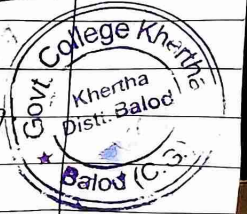 Govt College Khertha
Khertha
Distt. Balod
★ Balod (C.G.)